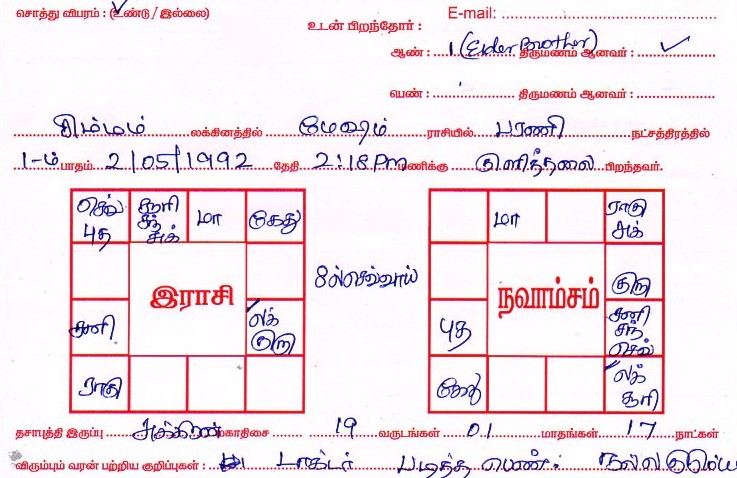 சொத்து விபரம் : (உண்டு / இல்லை)
E-mail:
உடன் பிறந்தோர் :
ஆண் : 1 (Elder Brother) திருமணம் ஆனவர் : ✓
பெண் : திருமணம் ஆனவர் :
சிம்மம் லக்கினத்தில் மேஷம் ராசியில் பரணி நட்சத்திரத்தில்
1-ம் பாதம் 2/05/1992 தேதி 2:18 Pm மணிக்கு குளித்தலை பிறந்தவர்.
செவ் புத
சூரி சந் சுக்
மா
கேது
இராசி
சனி
லக் குரு
ராகு
8ல் செவ்வாய்
மா
ராகு சுக்
நவாம்சம்
குரு
புத
சனி சந் செவ்
கேது
லக் சூரி
தசாபுத்தி இருப்பு சுக்கிரன் மகாதிசை 19 வருடங்கள் 01 மாதங்கள் 17 நாட்கள்
விரும்பும் வரன் பற்றிய குறிப்புகள் : டாக்டர் படித்த பெண். நல்ல